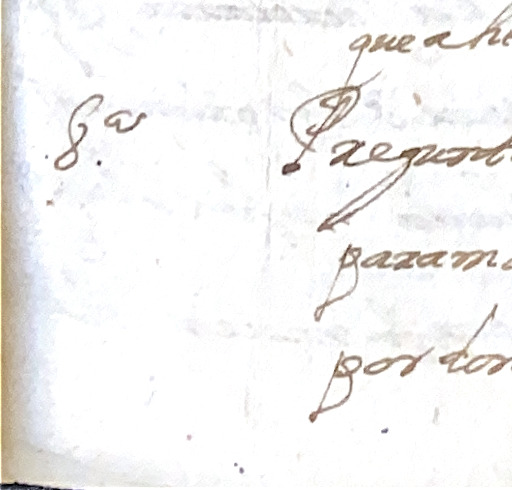 que a he
8.ª Pregunt
param
por don